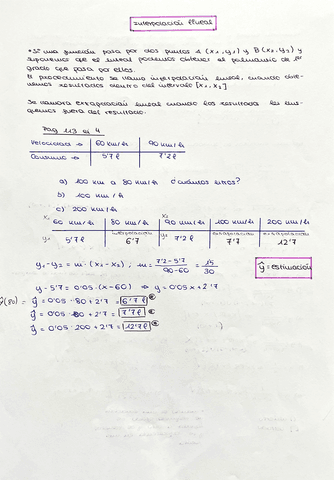 Interpolación lineal
• Si una función pasa por dos puntos A (x₁, y₁) y B (x₂, y₂) y
suponemos que es lineal podemos obtener el polinomio de 1er
grado que pasa por ellos.
El procedimiento se llama interpolación lineal, cuando obte-
nemos resultados dentro del intervalo [x₁, x₂]
Se llama extrapolación lineal cuando los resultados los
fuera del resultado.
Pag 119 ej 4
Velocidad → 60 km/h 90 km/h
Consumo → 5'7 l 7'2 l
a) 100 km a 80 km/h ¿cuántos litros?
b) 100 km/h
c) 200 km/h
x₁ x₂
60 km/h 80 km/h 90 km/h 100 km/h 200 km/h
interpolación extrapolación extrapolación
y₁ 5'7 l 6'7 y₂ 7'2 l 7'7 12'7
y - y₂ = m · (x - x₂) ; m = 7'2 - 5'7 / 90 - 60 = 1'5 / 30
ŷ = estimación
y - 5'7 = 0'05 · (x - 60) ⇒ y = 0'05 x + 2'7
ŷ(80) = ŷ = 0'05 · 80 + 2'7 = 6'7 l
ŷ = 0'05 · 100 + 2'7 = 7'7 l
ŷ = 0'05 · 200 + 2'7 = 12'7 l